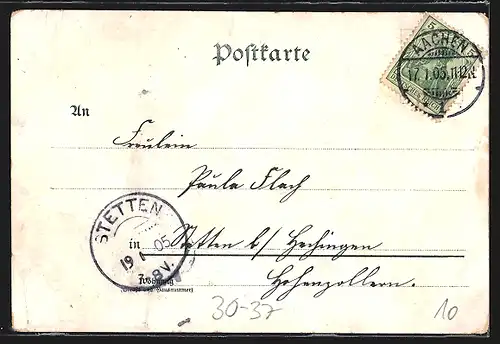 Postkarte
5
AACHEN
17.1.05.11-12.V.
1
An
Fräulein
Paula Flach
STETTEN
19 1 05
7-8 V.
in Stetten b/ Hechingen
Wohnung
(Straße und Hausnummer)
Hohenzollern.
30-37
10